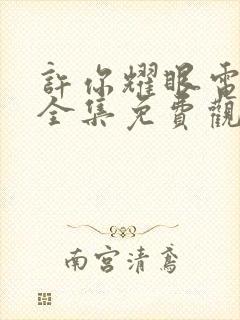 許你耀眼電
全集免費觀
南宮清鳶